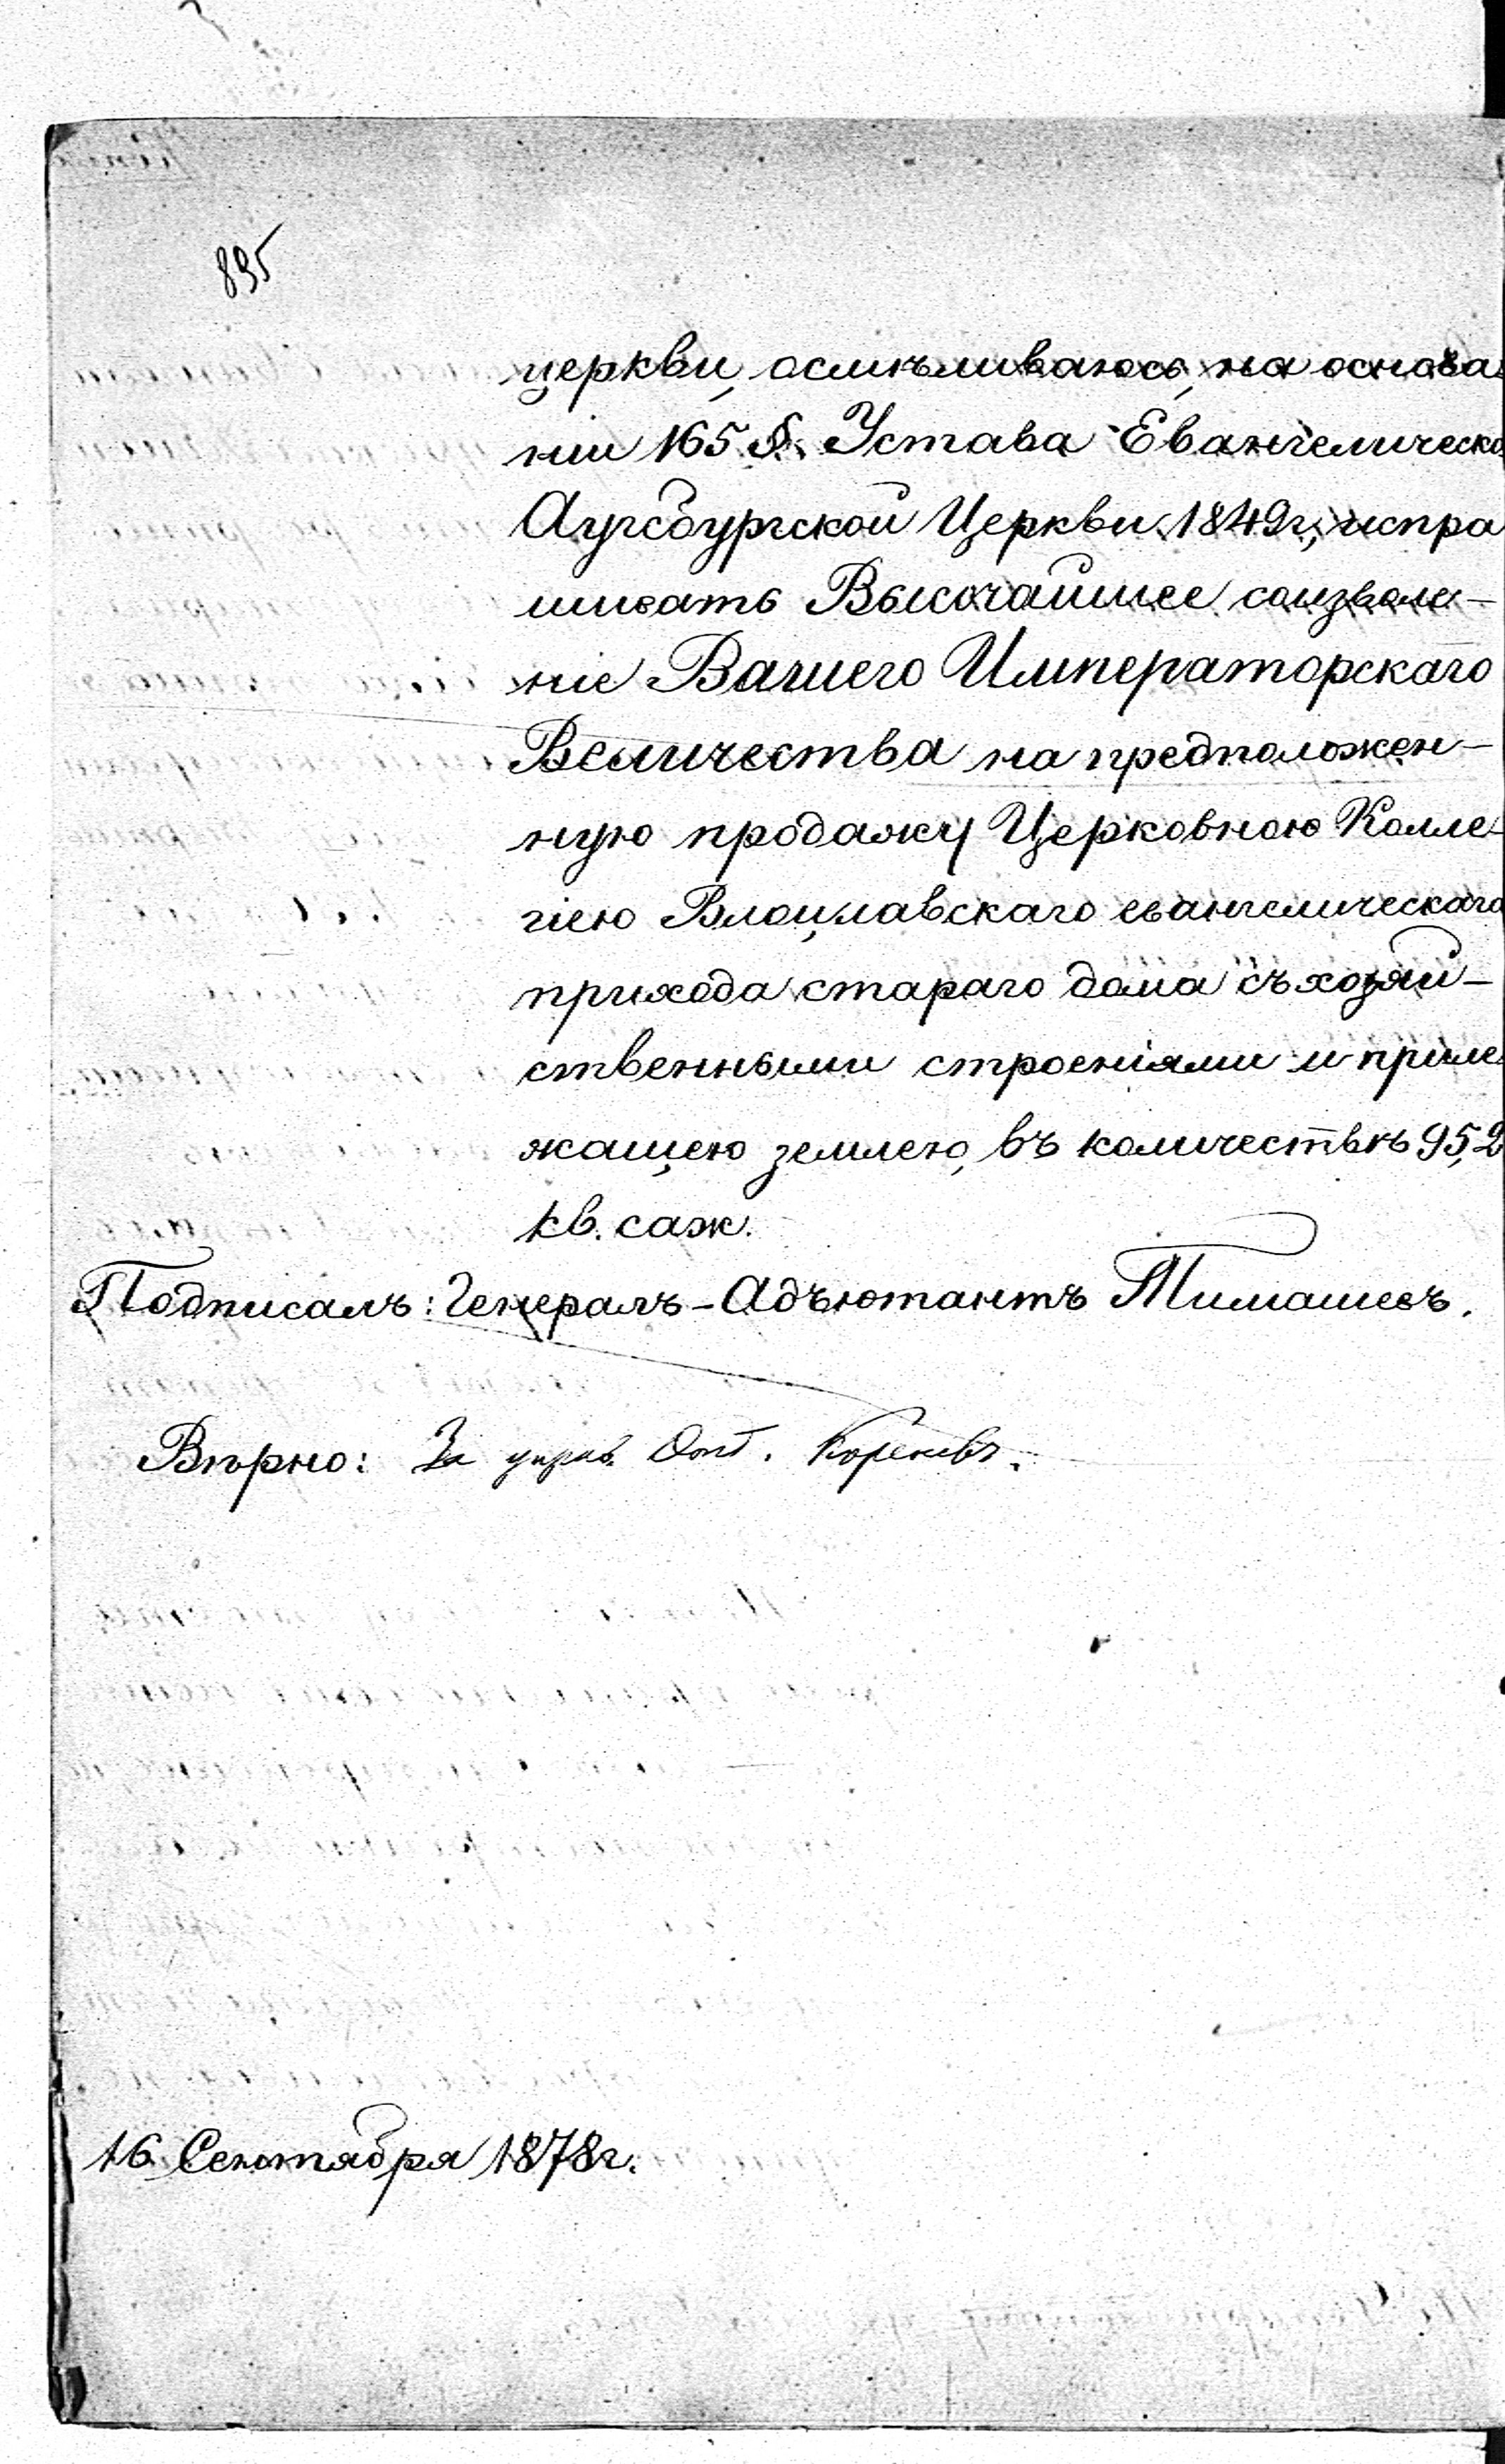 895
церкви, осмѣливаюсь, на основа
нiи 165 §. Устава Евангелическо
Аугсбургской Церкви 1849г., испра
шивать Высочайшее соизволе-
нiе Вашего Императорскаго
Величества на предположен-
ную продажу Церковною Колле
гiею Влоцлавскаго евангелическаго
прихода стараго дома съ хозяй-
ственными строенiями и приле
жащею землею, въ количествѣ 95,2
кв. саж.
Подписалъ: Генералъ-Адъютантъ Тимашевъ.
Вѣрно: За управ. Отд.
16 Сентября 1878г.